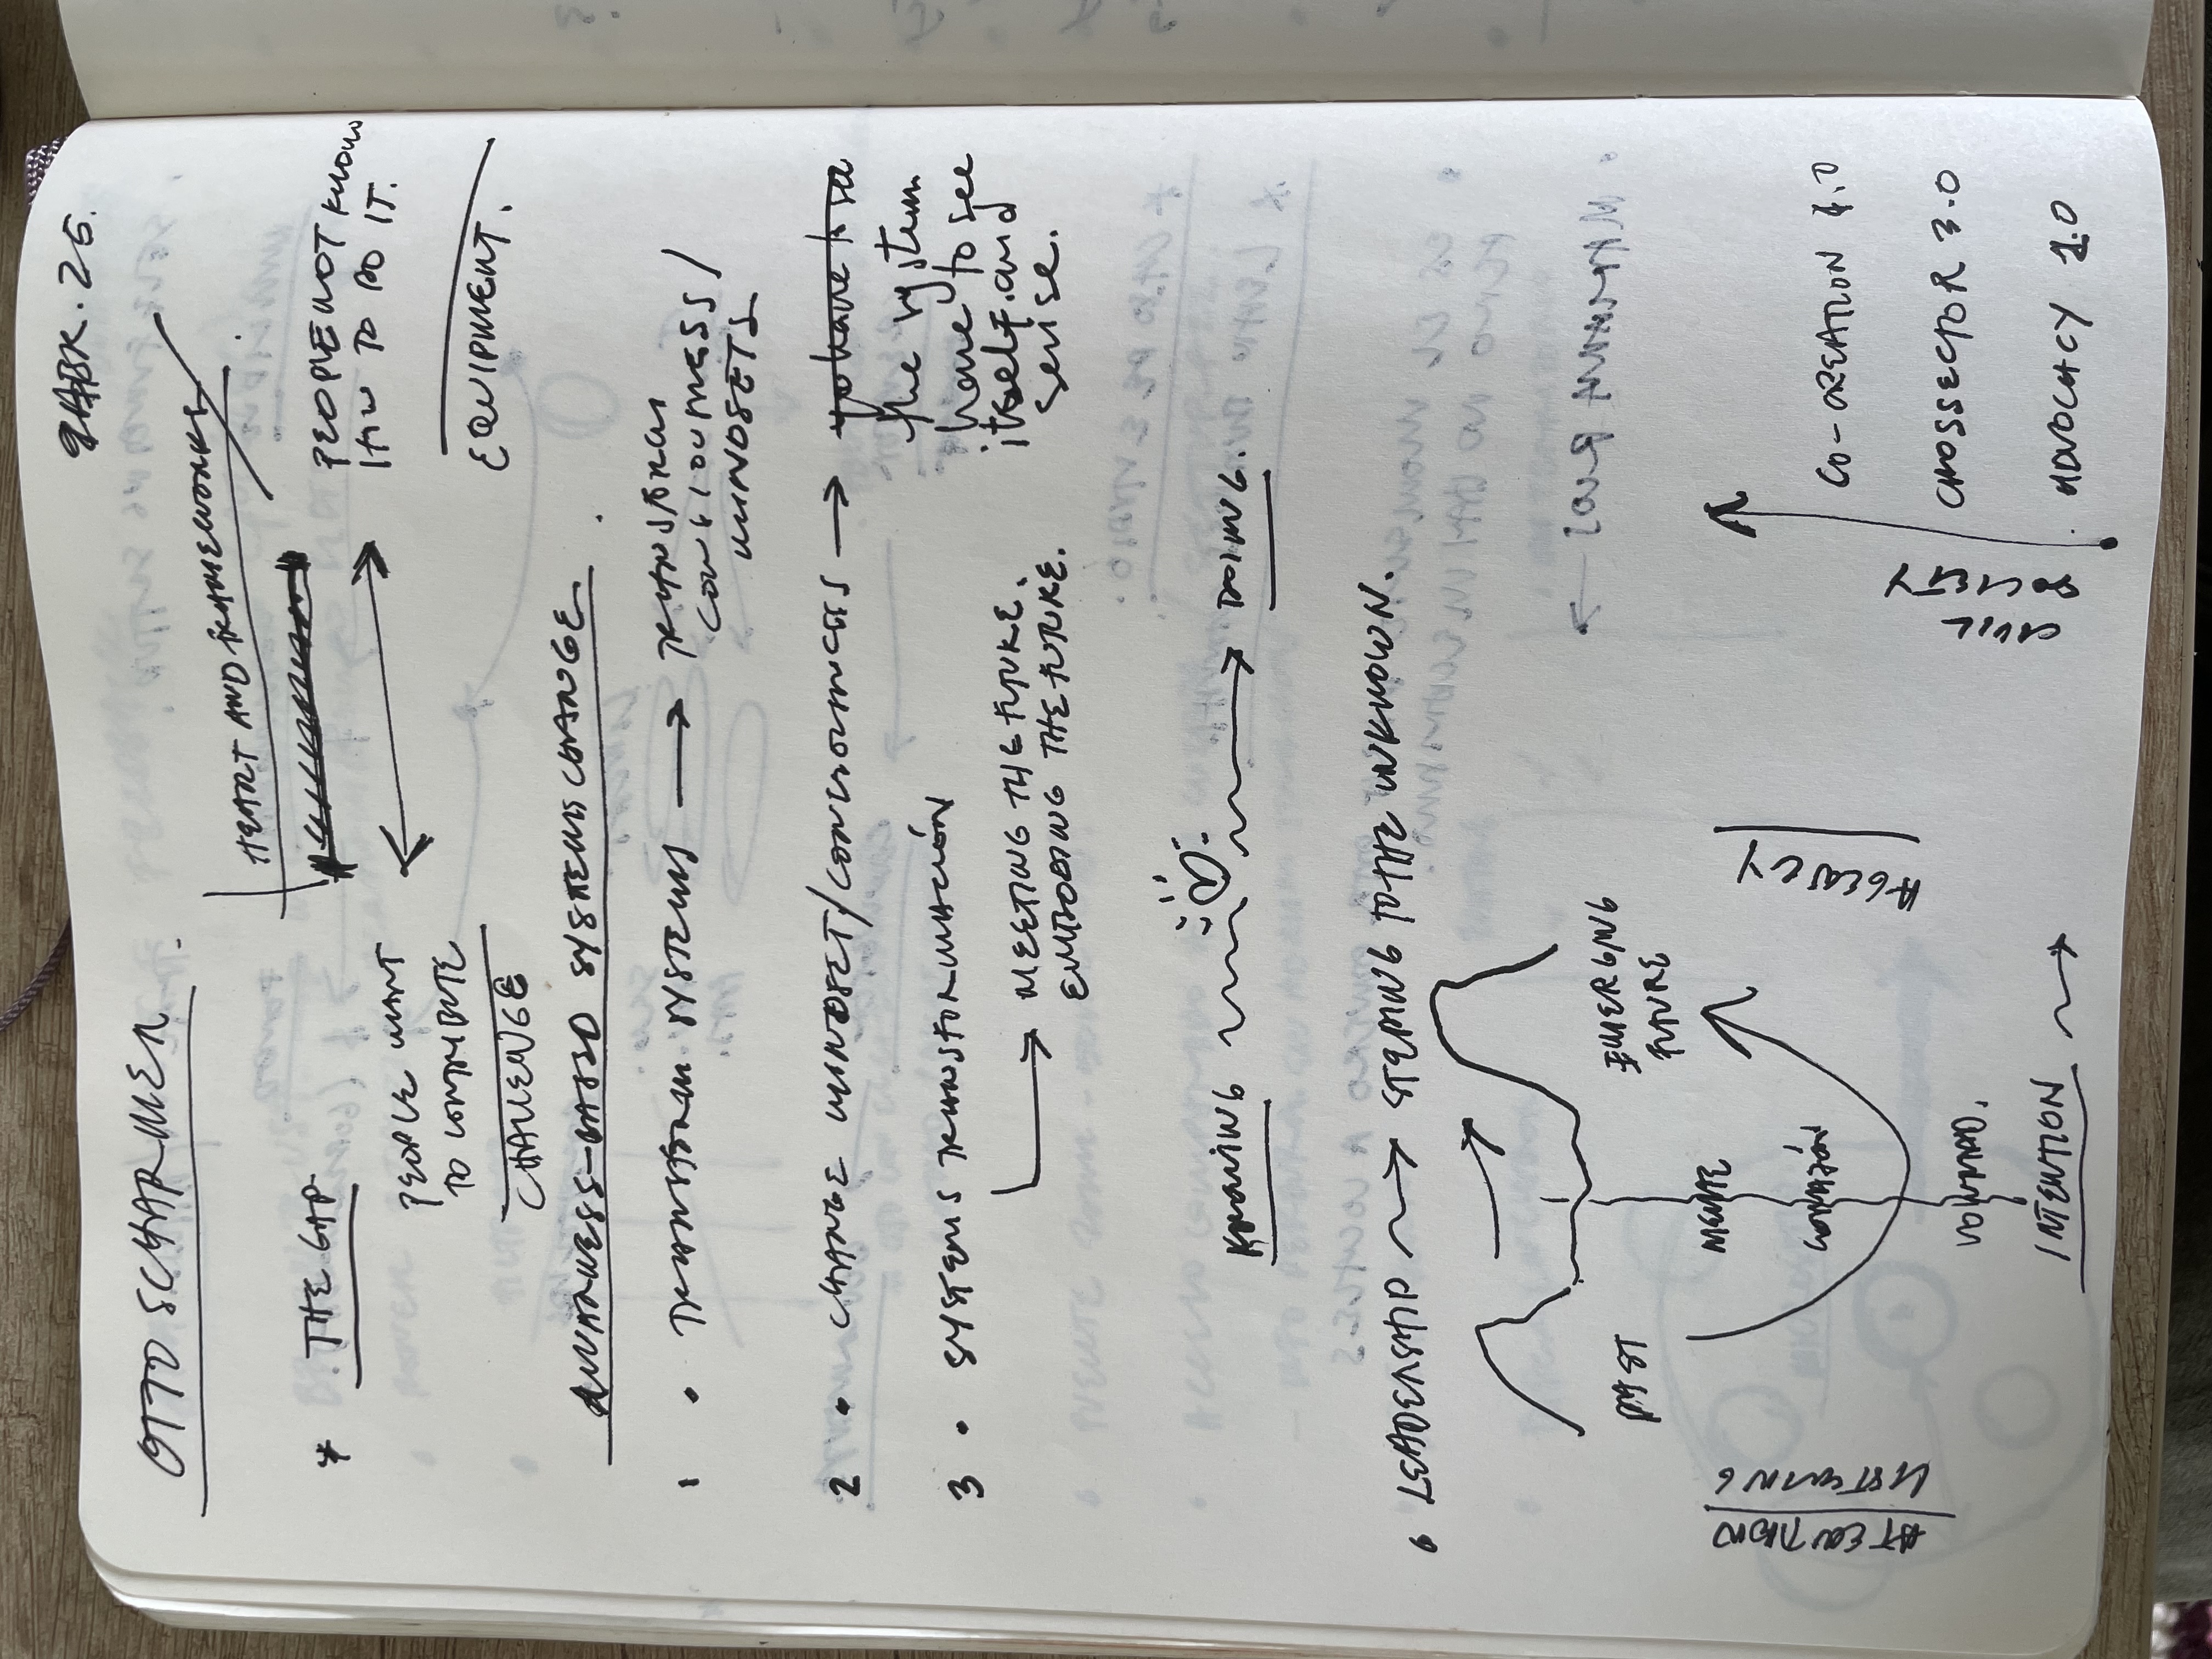 OTTO SCHARMER.
ABR. 25.
HEART AND FRAMEWORKS
* THE GAP
PEOPLE WANT
TO CONTRIBUTE
PEOPLE NOT KNOW
HOW TO DO IT.
CHALLENGE
EQUIPMENT.
AWARNESS-BASED SYSTEMS CHANGE.
1 • TRANSFORM SYSTEMS → TRANSFORM
CONSIOUSNESS /
MINDSETS
2 • CHANGE MINDSET/CONCIOUSNCESS →
the system
have to see
itself. and
sense.
3 • SYSTEMS TRANSFORMACIÓN
→ MEETING THE FUTURE.
EMBODING THE FUTURE.
KNOWING → DOING.
• LEADERSHIP → STEPPING TO THE UNKNOWN.
PAST
EMERGING
FUTURE
ATENTION
LISTENING
MENTE
CORAZÓN
VOLUNTAD.
INTENTION →
CO-CREATION 4.0
CROSSECTOR 3.0
ADVOCACY 1.0